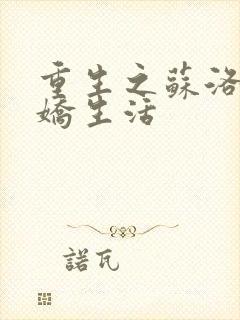 重生之蘇洛
嬌生活
諾瓦